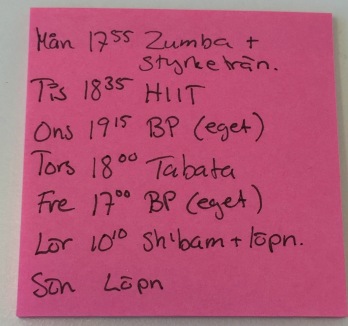 Mån 17⁵⁵ Zumba +
styrketrän.
Tis 18³⁵ HIIT
Ons 19¹⁵ BP (eget)
Tors 18⁰⁰ Tabata
Fre 17⁰⁰ BP (eget)
Lör 10¹⁰ Sh'bam + löpn.
Sön Löpn